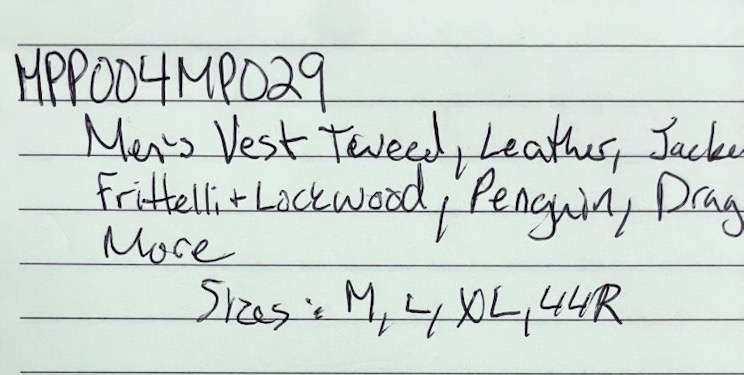 MPP004MP029
Men's Vest Tweed, Leather, Jacke
Frittelli + Lockwood, Penguin, Drag
More
Sizes: M, L, XL, 44R